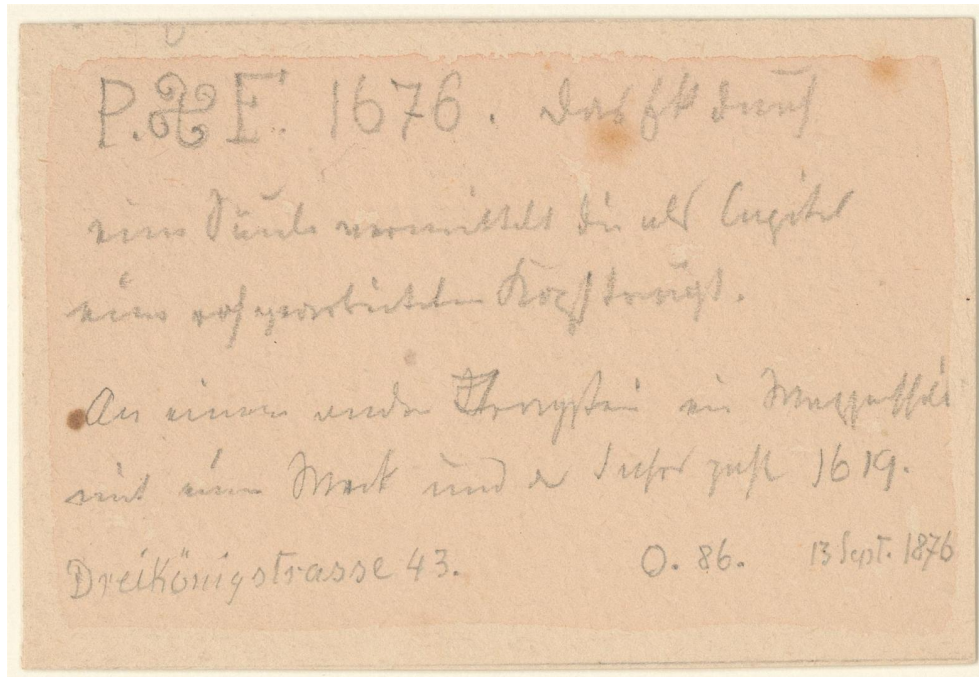 P. F. 1676. Das Eck durch
eine Säule vermittelt die als Capitel
einen rohgearbeiteten Kopf trägt.
An einem andern Tragstein ein Wappenschild
mit einem Werk und der Jahreszahl 1619.
Dreikönigstrasse 43. O. 86. 13 Sept. 1876